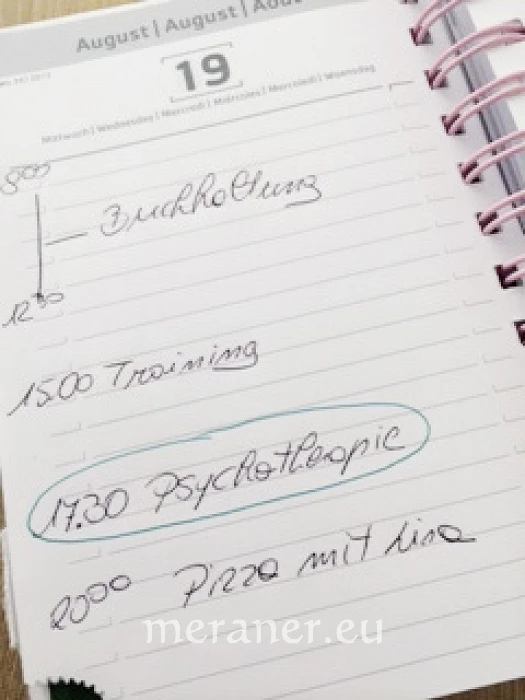 August | August | Août
19
Mittwoch | Wednesday | Mercredi | Miércoles | Mercoledì | Woensdag
8:00
Buchhaltung
12:30
15:00 Training
17.30 Psychotherapie
20:00 Pizza mit Lisa
meraner.eu